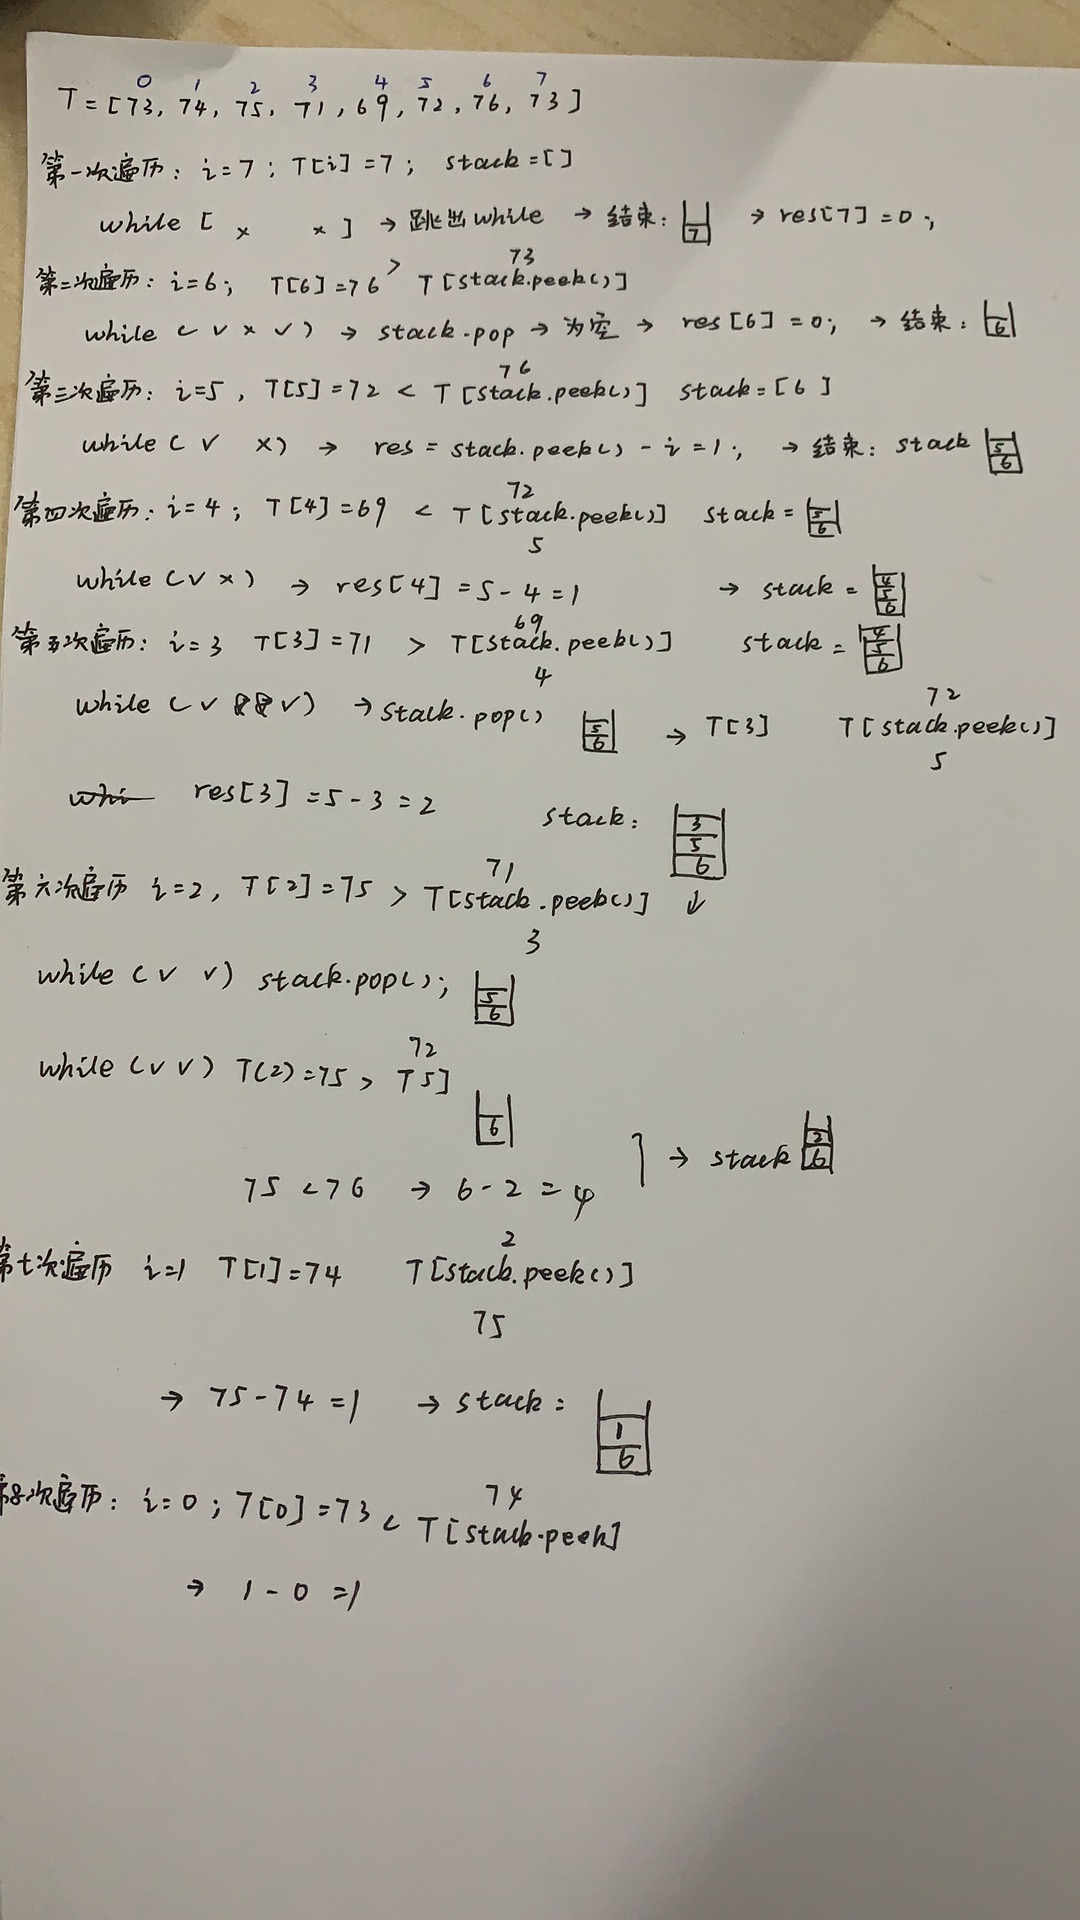 0 1 2 3 4 5 6 7
T = [73, 74, 75, 71, 69, 72, 76, 73]
第一次遍历: i=7; T[i]=7; stack=[]
while [ × × ] → 跳出while → 结束: 7 → res[7]=0;
73
第二次遍历: i=6; T[6]=76 > T[stack.peek()]
while (√ × √) → stack.pop → 为空 → res[6]=0; → 结束: 6
76
第三次遍历: i=5, T[5]=72 < T[stack.peek()] stack=[6]
while (√ ×) → res = stack.peek() - i = 1; → 结束: stack 5 6
72
第四次遍历: i=4; T[4]=69 < T[stack.peek()] stack = 5 6
5
while (√ ×) → res[4] = 5-4=1 → stack = 4 5 6
69
第五次遍历: i=3 T[3]=71 > T[stack.peek()] stack = 4 5 6
4
72
while (√ √) → stack.pop() 5 6 → T[3] T[stack.peek()]
5
whi res[3] = 5-3=2 stack: 3 5 6
71
第六次遍历 i=2, T[2]=75 > T[stack.peek()] ↓
3
while (√ √) stack.pop(); 5 6
72
while (√√) T(2)=75 > T5]
6
] → stack 2 6
75<76 → 6-2=4
2
第七次遍历 i=1 T[1]=74 T[stack.peek()]
75
→ 75-74=1 → stack: 1 6
74
第8次遍历: i=0; T[0]=73 < T[stack.peek]
→ 1-0=1